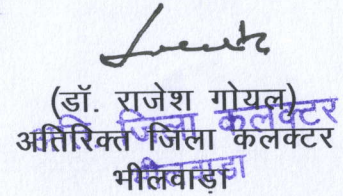 (डॉ. राजेश गोयल)
अतिरिक्त जिला कलेक्टर
भीलवाड़ा
अति. जिला कलेक्टर
भीलवाड़ा